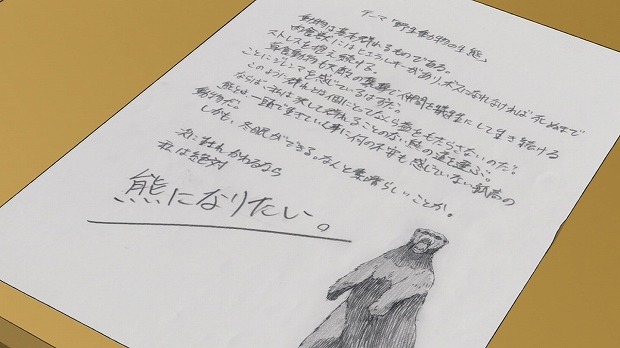 テーマ「野生動物の生態」
動物は基本群れるものである。
肉食獣にはヒエラルキーがありボスになれなければ死ぬまで
ストレスを抱え続ける。
草食動物も大群の襲撃で仲間を犠牲にして生き続ける
ことにジレンマを感じているはずだ。
このように群れとは個にとってなんら益をもたらさないのだ？
ならば、私は決して群れることのない熊の道を選ぶ。
熊とは、一頭で生きていく事に何の不安も感じていない孤高の
動物だ。
しかも、冬眠ができる。なんと素晴らしいことか。
次に生まれかわるなら
私は絶対
熊になりたい。